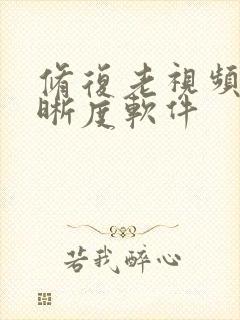 脩復老視頻
晰度軟件
若我醉心